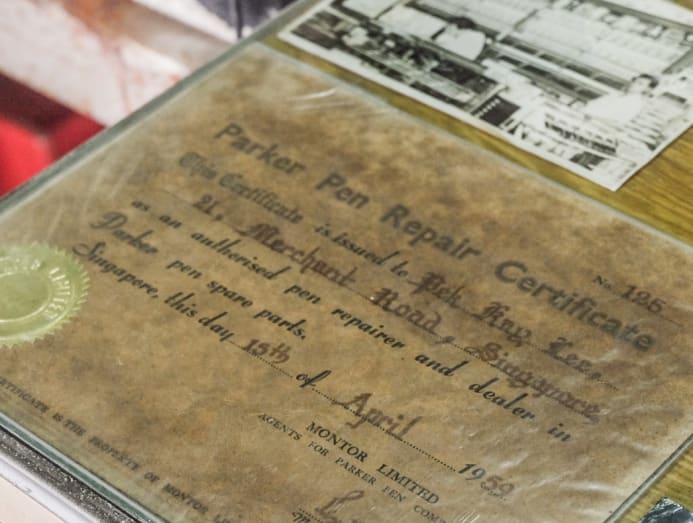 Parker Pen Repair Certificate
No. 125
This Certificate is issued to Pek Kny Zee
21, Merchant Road, Singapore
as an authorised pen repairer and dealer in
Parker pen spare parts.
Singapore, this day 15th of April 1959
MONTOR LIMITED
AGENTS FOR PARKER PEN COMP
CERTIFICATE IS THE PROPERTY OF MONTOR L
LIMITED